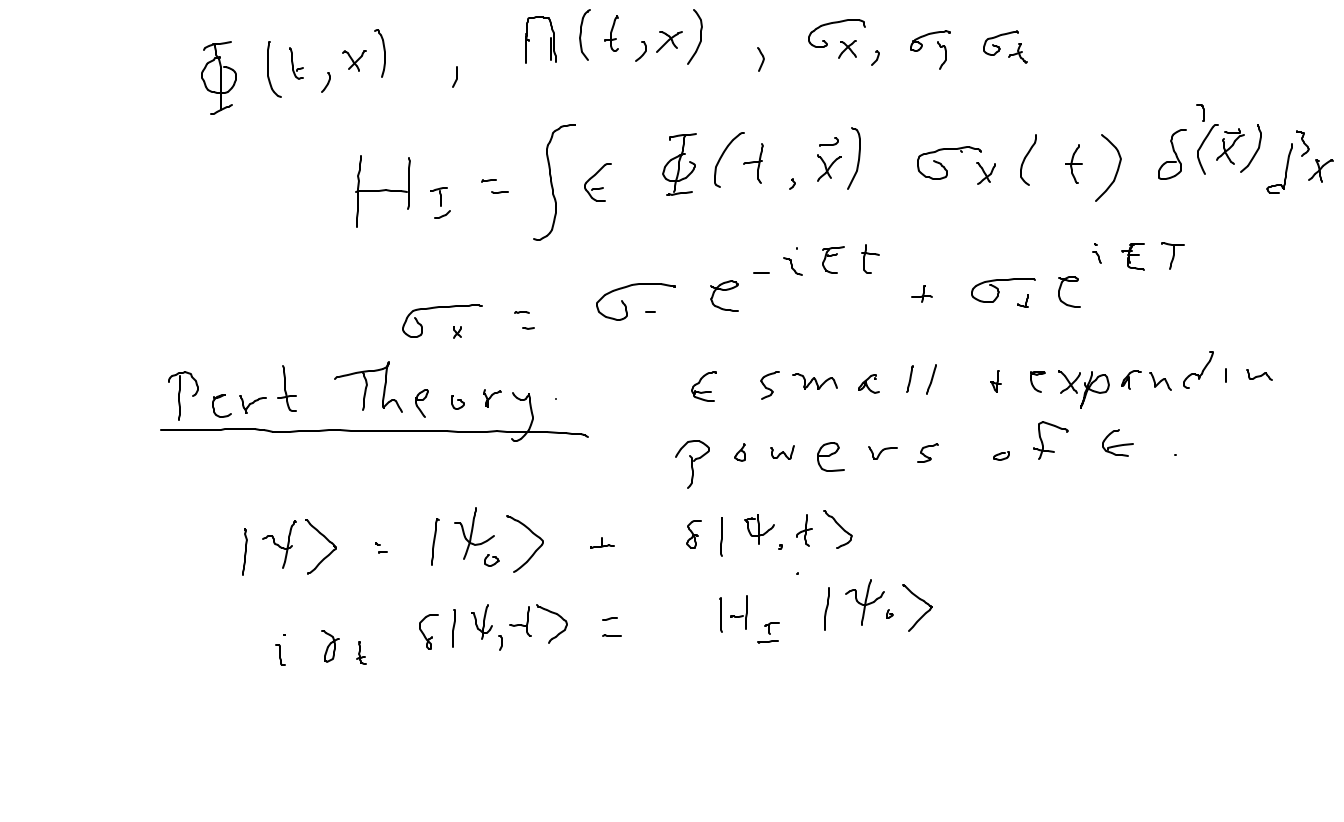 Φ(t,x), Π(t,x), σx, σy σz
H_I = ∫ ϵ Φ(t,x⃗) σx(t) δ³(x⃗) d³x
σx = σ₋ e^{-iEt} + σ₊ e^{iET}
Pert Theory. ϵ small + expand in
powers of ϵ.
|ψ> = |ψ₀> + δ|ψ,t>
i∂t δ|ψ,t> = H_I |ψ₀>